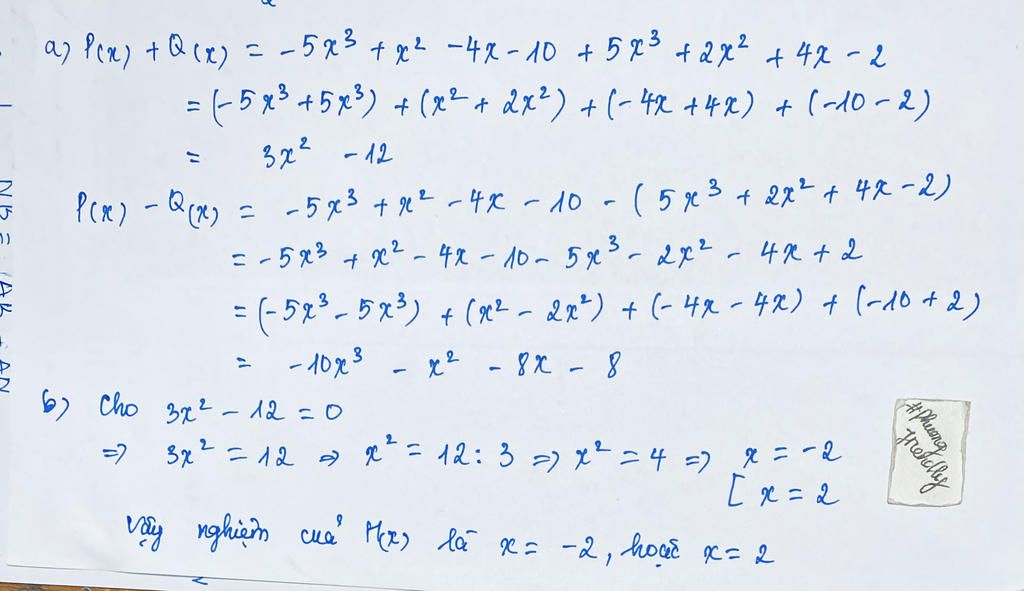 a) P(x) + Q(x) = -5x³ + x² - 4x - 10 + 5x³ + 2x² + 4x - 2
= (-5x³ + 5x³) + (x² + 2x²) + (-4x + 4x) + (-10 - 2)
= 3x² - 12
P(x) - Q(x) = -5x³ + x² - 4x - 10 - (5x³ + 2x² + 4x - 2)
= -5x³ + x² - 4x - 10 - 5x³ - 2x² - 4x + 2
= (-5x³ - 5x³) + (x² - 2x²) + (-4x - 4x) + (-10 + 2)
= -10x³ - x² - 8x - 8
b) Cho 3x² - 12 = 0
=> 3x² = 12 => x² = 12 : 3 => x² = 4 => x = -2
[ x = 2
Vậy nghiệm của H(x) là x = -2, hoặc x = 2
#Phuong
Friendly